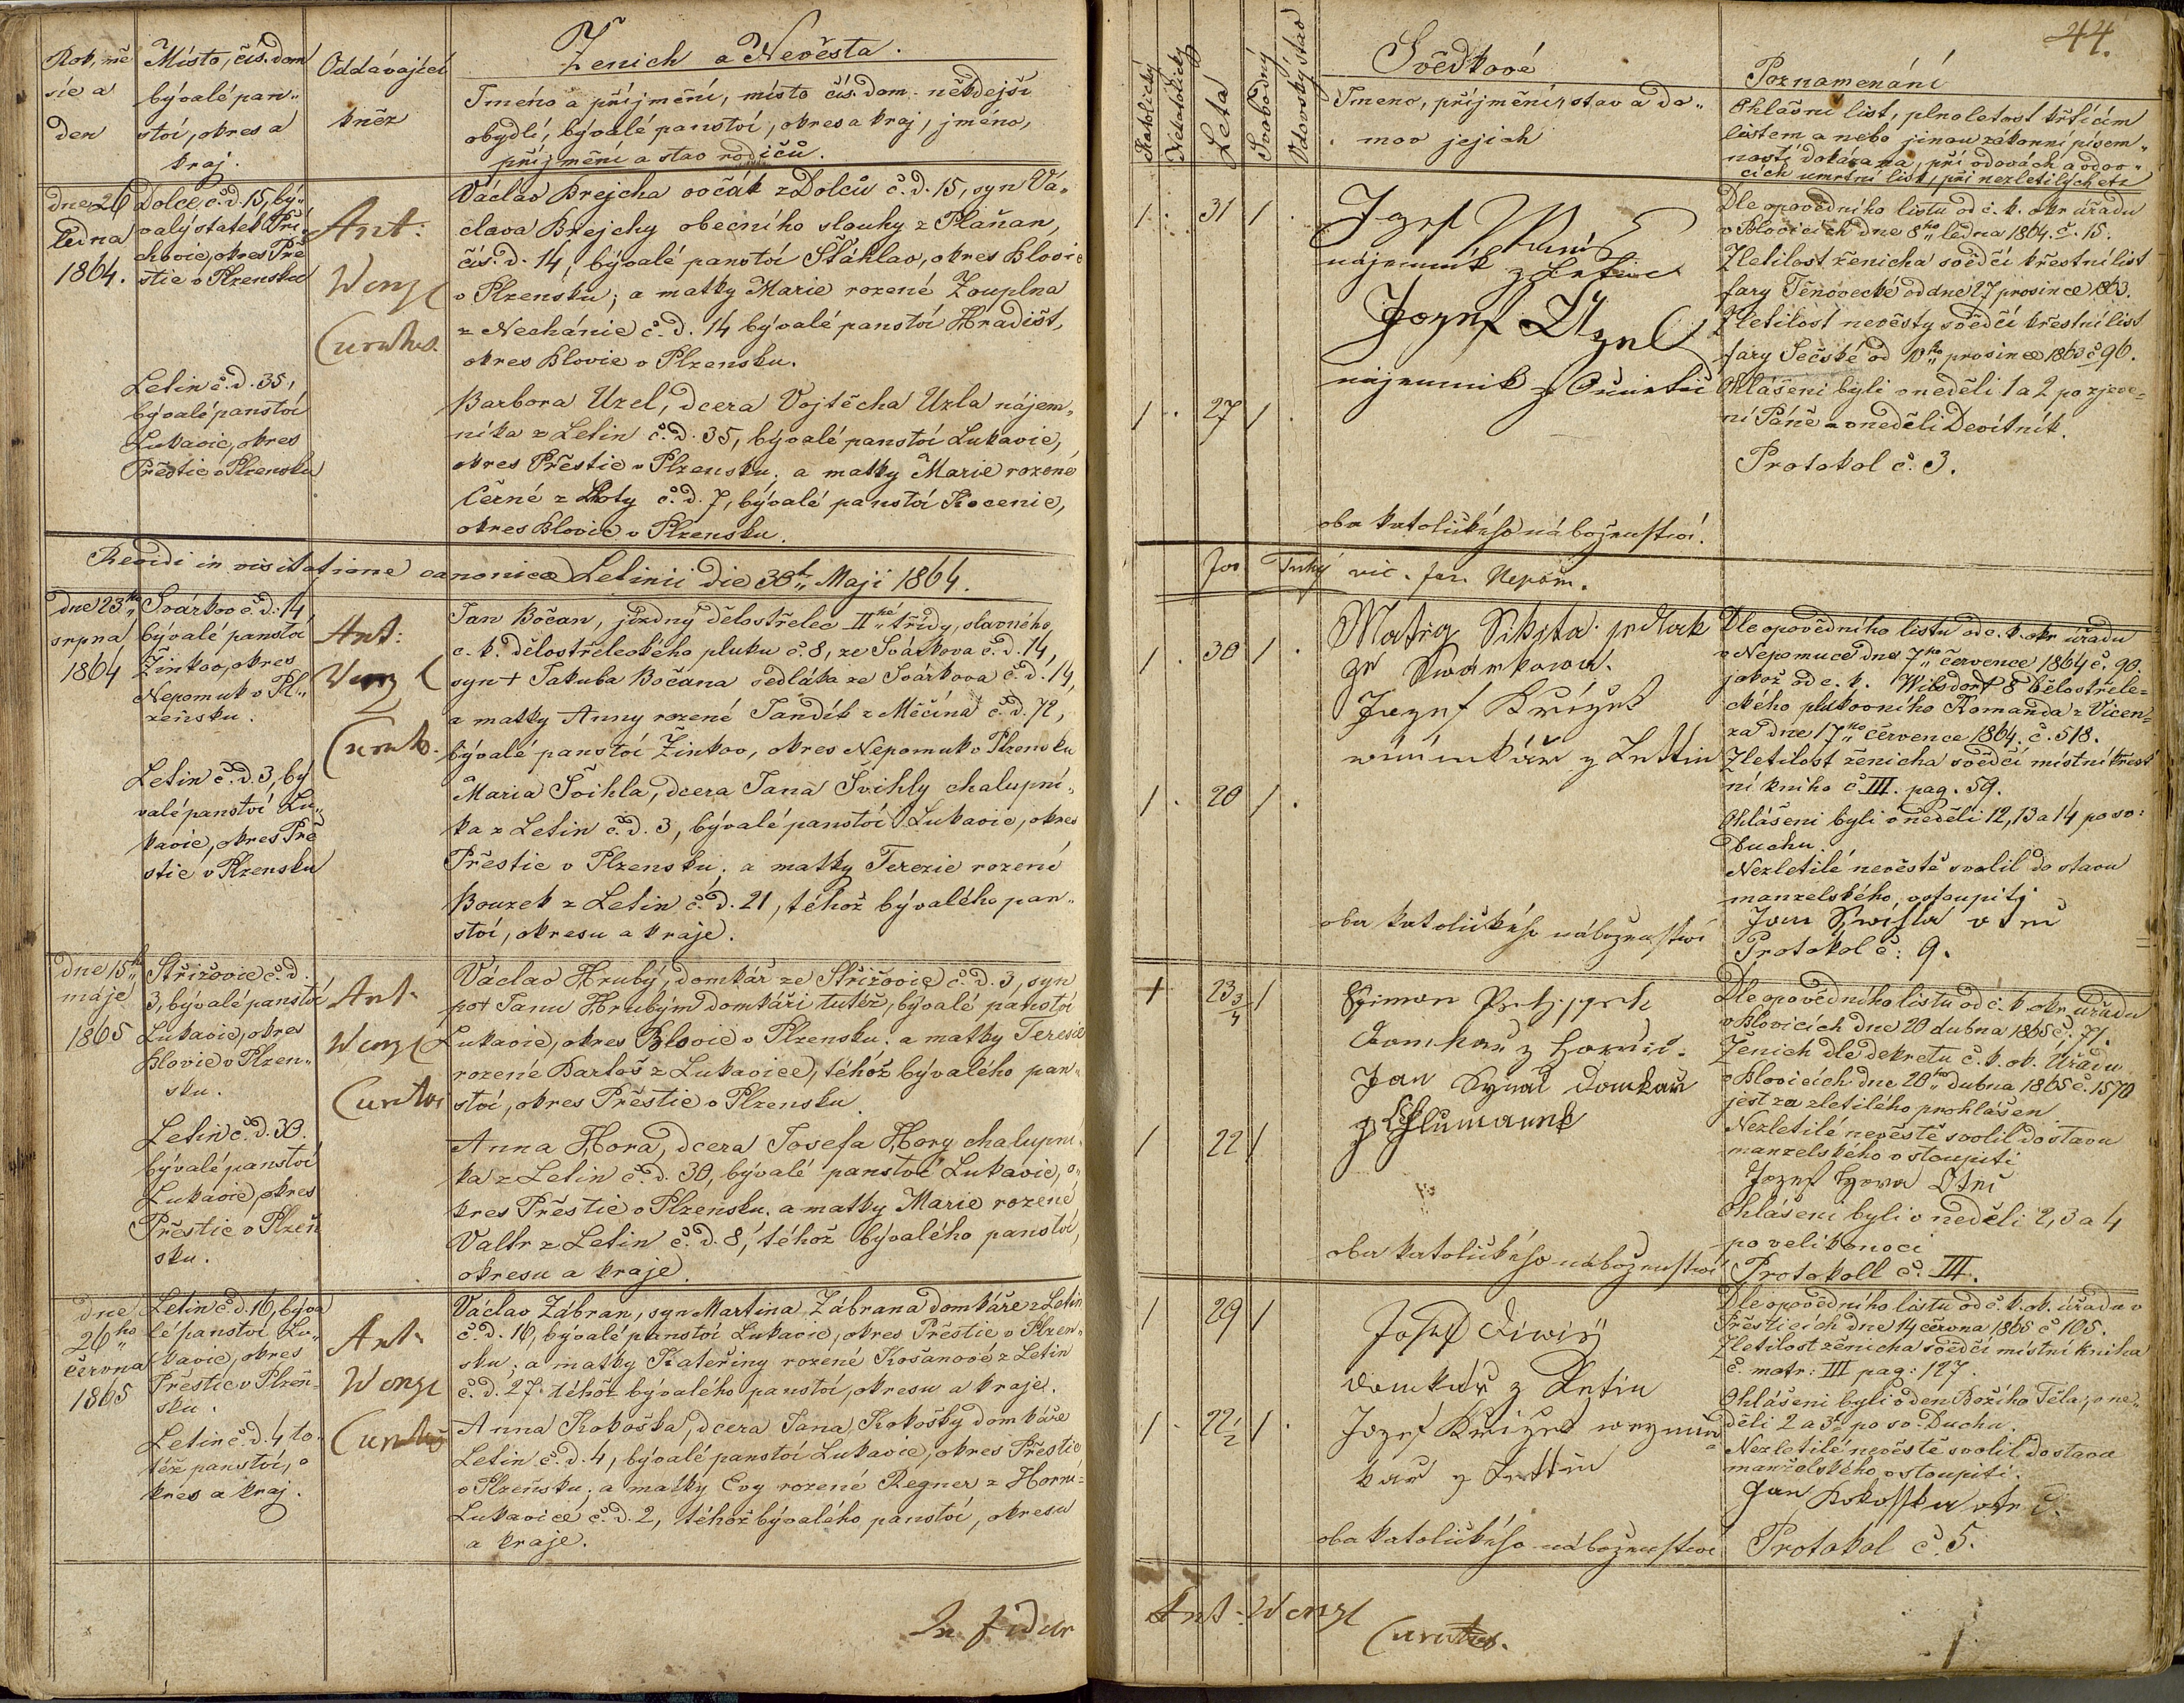 Rok, mě
síc a
den
Místo, čís. dom
bývalé pan„
ství, okres a
kraj.
Oddávající
kněz
Ženich a Nevěsta.
Jméno a příjmění, místo čís. dom. někdejší
obydlí, bývalé panství, okres a kraj, jméno,
příjmění a stav rodičů.
dne 26
ledna
1864.
Dolce, č. d. 15, bý„
valý statek Pří
chovic, okres Pře
stic v Plzensku
Ant:
Wenzl
Curatus.
Václav Brejcha ovčák z Dolců č. d. 15, syn Vá„
clava Brejchy obecního slouhy z Plaňan,
čís. d. 14, bývalé panství Šťáhlav, okres Blovic
v Plzensku; a matky Marie rozené Zouplna
z Nechánic č. d. 14 bývalé panství Hradišt,
okres Blovic v Plzensku.
Letin č. d. 35,
bývalé panství
Lukavic, okres
Přestic v Plzensku
Barbora Uzel, dcera Vojtěcha Uzla nájem„
níka z Letin č. d. 35, bývalé panství Lukavic,
okres Přestic v Plzensku; a matky Marie rozené
Černé z Lhoty č. d. 7, bývalé panství Kocenic,
okres Blovic v Plzensku.
Revidi in visitatione canonica Letinii die 30t„ Maji 1864.
dne 23ho
srpna
1864
Svárkov č. d. 14
bývalé panství
Žinkov, okres
Nepomuk v Pl„
zeňsku.
Ant:
Wenzl
Curat.
Jan Bočan, jízdný dělostřelec II„hé třídy, slavného
c. k. dělostřeleckého pluku č. 8, ze Svárkova č. d. 14,
syn + Jakuba Bočana sedláka ze Svárkova č. d. 14,
a matky Anny rozené Tandík z Měčína č. d. 72,
bývalé panství Žinkov, okres Nepomuk v Plzensku
Letin č. d. 3, bý
valé panství Lu„
kavic, okres Pře
stic v Plzensku
Maria Švihla, dcera Jana Švihly chalupní„
ka z Letin č. d. 3, bývalé panství Lukavic, okres
Přestic v Plzensku; a matky Terezie rozené
Bouzek z Letin č. d. 21, téhož bývalého pan„
ství, okresu a kraje.
dne 15ho
máje
1865
Střižovic č. d.
3, bývalé panství
Lukavic, okres
Blovic v Plzen„
sku.
Ant.
Wenzl
Curatus
Václav Hrubý, domkář ze Střižovic č. d. 3, syn
po + Janu Hrubým domkáři tutéž, bývalé panství
Lukavic, okres Blovic v Plzensku; a matky Teresie
rozené Bartoš z Lukavice, téhož bývalého pan„
ství, okres Přestic v Plzensku.
Letin č. d. 30.
bývalé panství
Lukavic, okres
Přestic v Plzeň
sku.
Anna Hora, dcera Josefa Hory chalupní„
ka z Letin č. d. 30, bývalé panství Lukavic, o„
kres Přestic v Plzensku, a matky Marie rozené
Valtr z Letin č. d. 8, téhož bývalého panství,
okresu a kraje.
dne
26ho
června
1865
Letin č. d. 16, býva
lé panství Lu„
kavic, okres
Přestic v Plzeň„
sku.
Ant.
Wenzl
Curatus
Václav Zábran, syn Martina Zábrana domkáře z Letin
č. d. 16, bývalé panství Lukavic, okres Přestic v Plzen„
sku; a matky Kateřiny rozené Košanové z Letin
č. d. 27. téhož bývalého panství, okresu a kraje.
Letin č. d. 4 to
též panství, o
kres a kraj.
Anna Kokoška, dcera Jana Kokošky domkáře
Letin č. d. 4, bývalé panství Lukavic, okres Přestic
v Plzeňsku; a matky Evy rozené Regner z Horní=
Lukavice č. d. 2, téhož bývalého panství, okresu
a kraje.
In fidem
44.
Katolický
Nekatolický
Léta
Svobodný
Vdovský stav
Svědkové
Jmeno, příjmění, stav a do„
mov jejich
Poznamenání
Ohlašní list, plnoletost křtícím
listem a nebo jinou zákonní písem„
ností dokázana, při vdovách a vdov„
cích umrtní list, při nezletilých etc
1. 31 1.
Jozef
nájemník z Letin
Jozef Uzel
nájemník z
1. 27 1.
oba katolického náboženství.
Dle opovědního listu od c. k. okr úřadu
v Blovicích dne 8ho„ ledna 1864. č. 15.
Zletilost ženicha svědčí křestní list
fary Těnovecké od dne 27 prosince 1863.
Zletilost nevěsty svědčí křestní list
fary Sečské od 10ho„ prosince 1863 č 96.
Ohlášeni byli v neděli 1 a 2 po zjeve„
ní Páně a v neděli Devítník.
Protokol č. 3.
Jos Turký vic. for. Nepom.
1. 30 1.
Matěg Sikyta sedlak
ze Swarkowa.
Jozef Křížek
z Lettin
1. 20 1.
oba katolického náboženství
Dle opovědního listu od c. k. okr úřadu
v Nepomuce dne 7ho„ července 1864 č. 90.
jakož od c. k. Wilsdorf 8 dělostřele=
ckého plukovního Komanda z Vicen=
za dne 17ho„ července 1864. č. 518.
Zletilost ženicha svědčí místní křest
ní kniha č III. pag. 59.
Ohlášeni byli v neděli 12, 13 a 14 po sv:
Duchu.
Nezletilé nevěstě svolil do stavu
manzelského vstoupiti
Jan Swihla otec
Protokol č: 9.
1 23 3/4 1
Ssimon
Domkař z
Jan Synač Domkař
z Chlumanek
1 22 1
oba katolického náboženství
Dle opovědního listu od c. k. okr. úřadu
v Blovicích dne 20 dubna 1865 č. 71.
Ženich dle dekretu c. k. ok. Úřadu
v Blovicích dne 20ho„ dubna 1865 č. 1570
jest za zletilého prohlášen
Nezletilé nevěstě svolil do stavu
manzelského vstoupiti
Jozef Hora Otec
Ohlášeni byli v neděli 2, 3 a 4
po velikonoci
Protokoll č. III.
1 29 1
Josef Diwiš
domkář z Letin
1. 22 1/2 1.
Jozef Křížek
kař z Lettin
oba katolického náboženství
Dle opovědního listu od c. k. ok. úřadu v
Přesticích dne 14 června 1865 č 105.
Zletilost ženicha svědčí místní kniha
č. matr: III pag: 127.
Ohlášeni byli v den Božího Těla, v ne„
děli 2 a 3tí po sv. Duchu.
Nezletilé nevěstě svolil do stavu
manželského vstoupiti.
Jan Kokosska otec
Protokol č. 5.
Ant. Wenzl
Curatus.